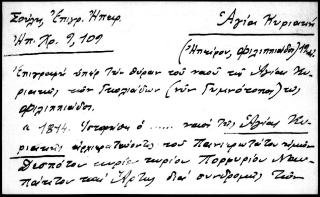 Σούλης, Ἐπιγρ. Ἠπειρ.
Ἠπ. Χρ. 9, 109
Ἁγία Κυριακὴ
(Ἠπείρου, Φιλιππιάδος)
Ἐπιγραφὴ ὑπὲρ τὴν θύραν τοῦ ναοῦ τῆς Ἁγίας Κυ-
ριακῆς τῶν (νῦν Γυμνότοπος) τῆς
Φιλιππιάδος.
α 1814. Ἱστορήθη ὁ ...... ναὸς τῆς Ἁγίας Κυ-
ριακῆς ἀρχιερατεύοντος τοῦ Πανιερωτάτου ἡμῶν
Δεσπότου κυρίου κυρίου Πορφυρίου Ναυ-
πάκτου καὶ Ἄρτης διὰ συνδρομῆς τῶν